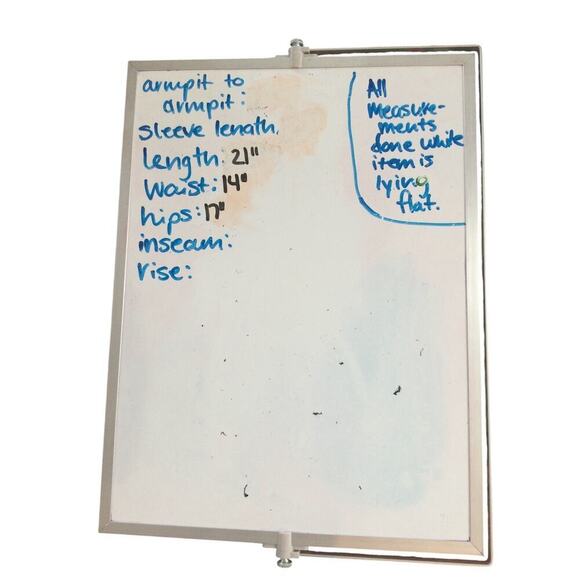 armpit to
armpit:
sleeve length.
Length: 21"
Waist: 14"
hips: 17"
inseam:
rise:
All
Measure-
ments
done while
item is
lying
flat.